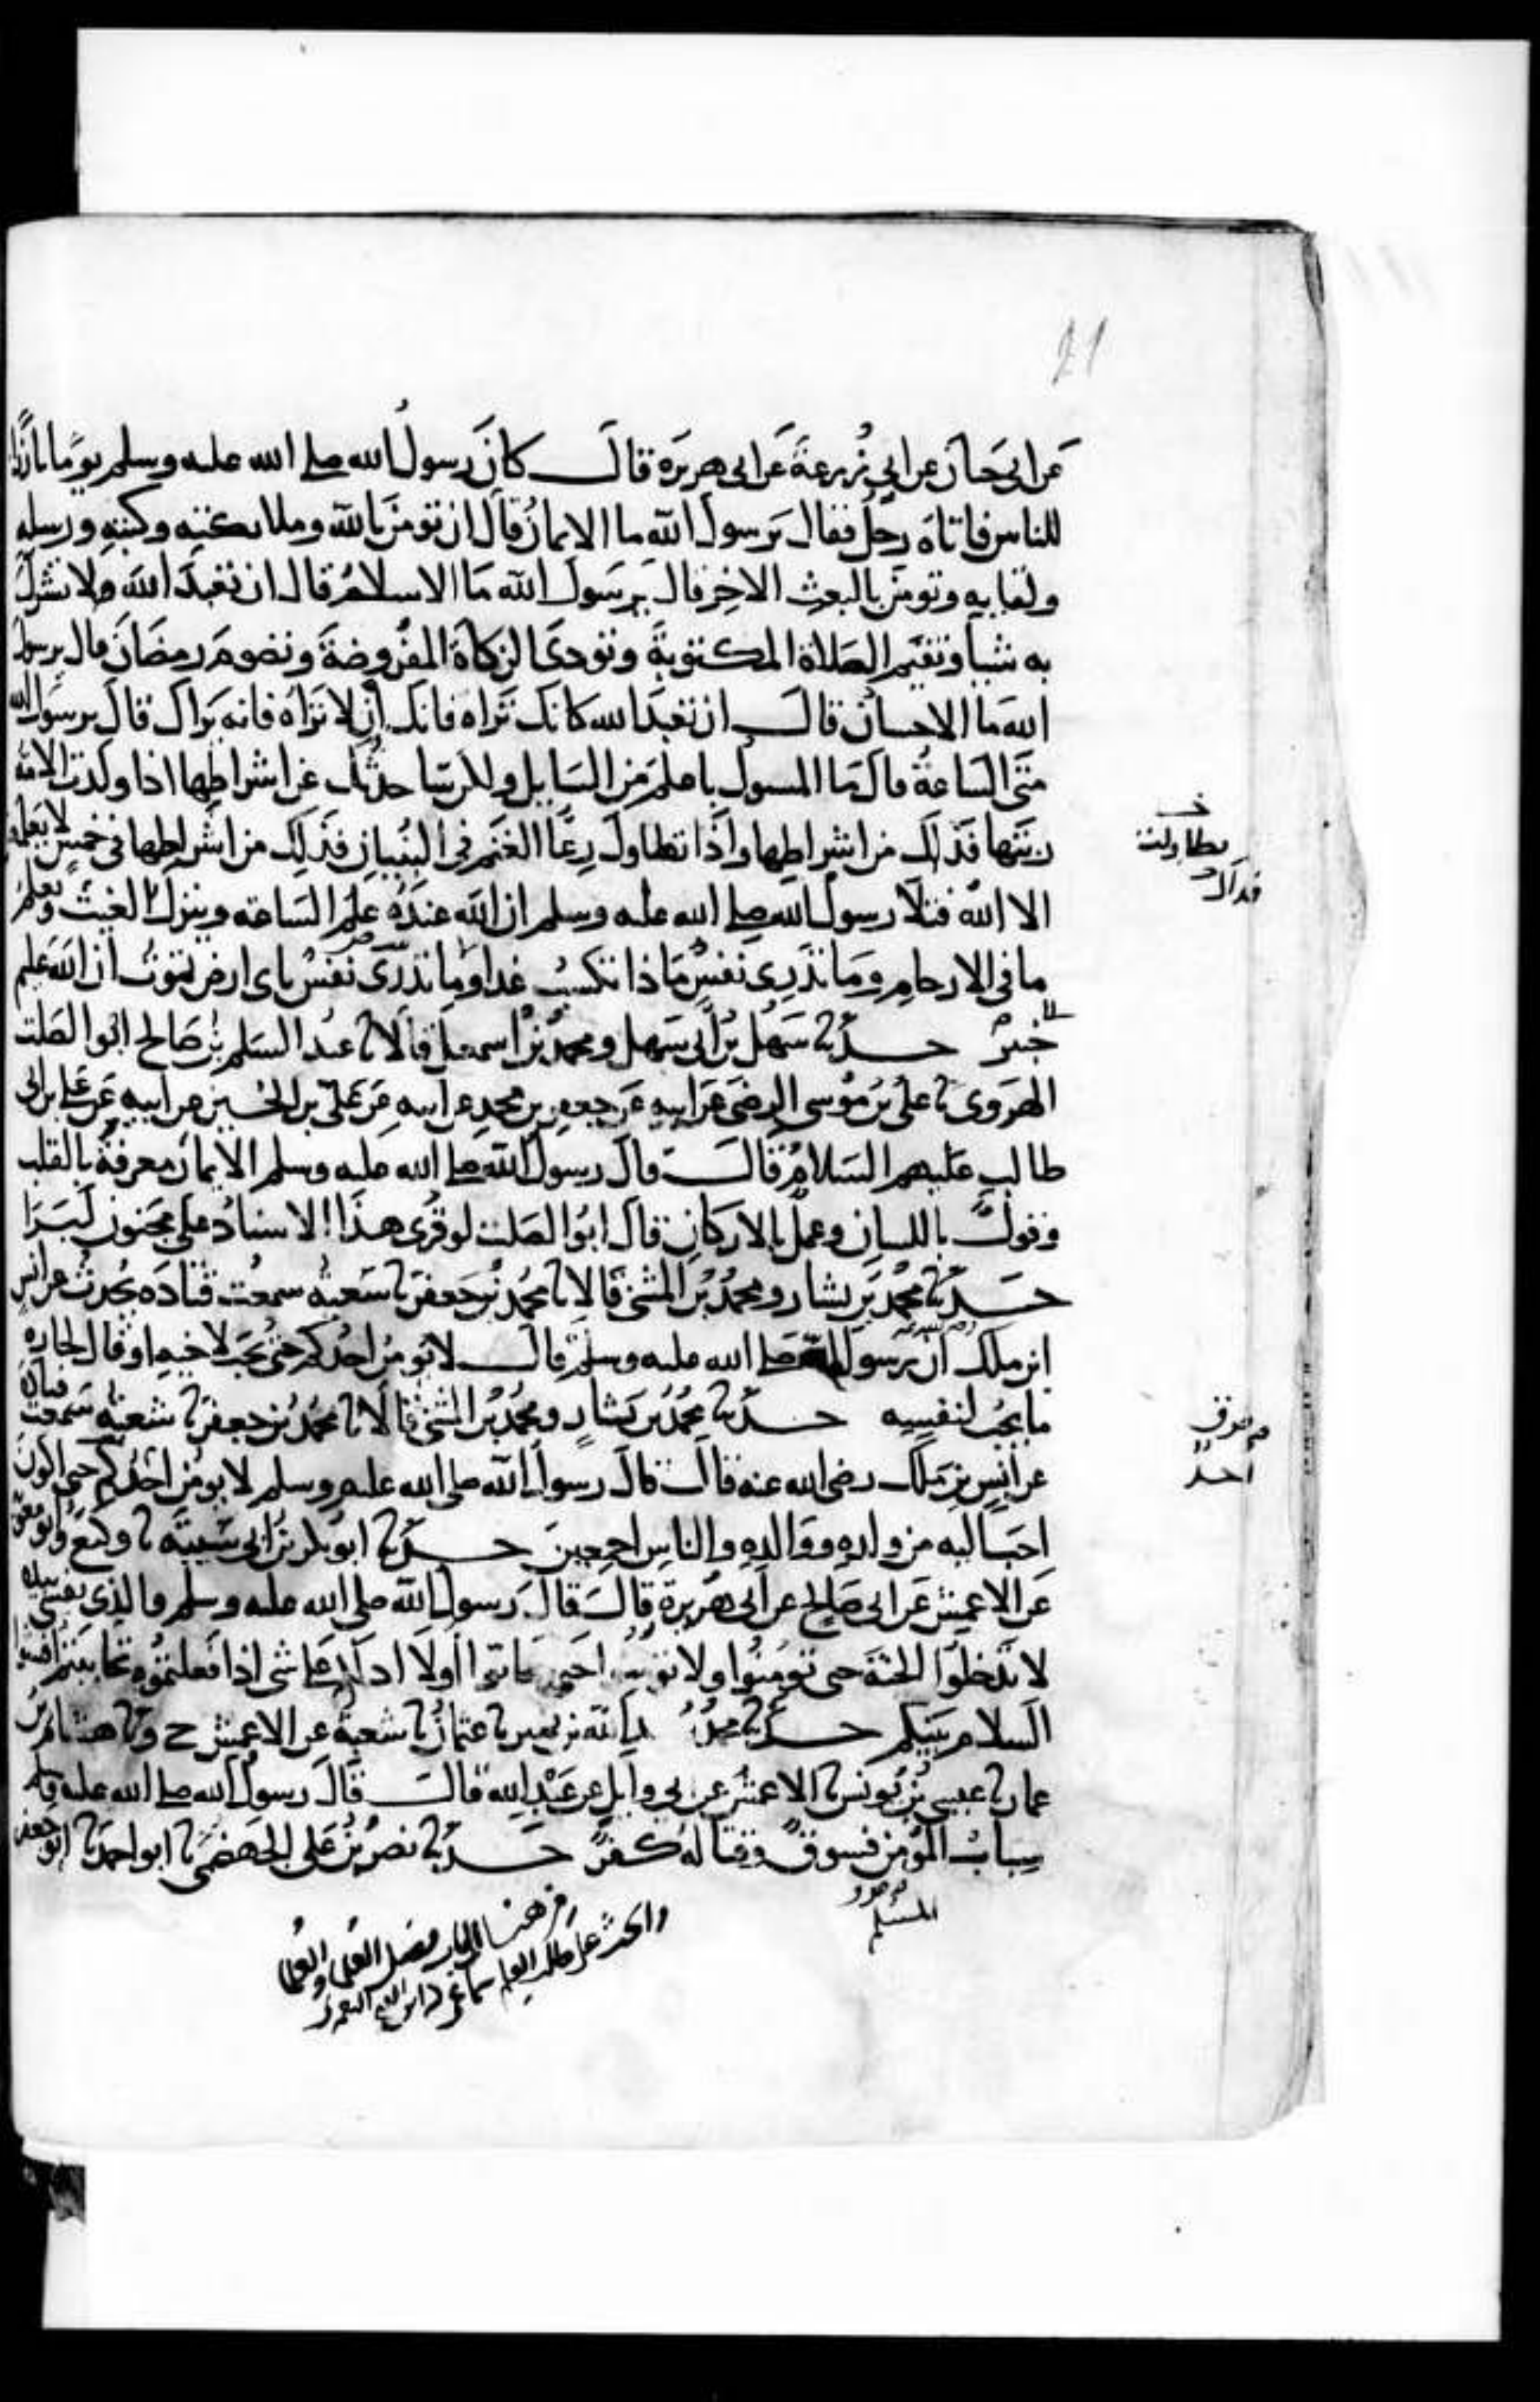 21
عن ابى حيان عن ابي زرعة عن ابى هريره قال كان رسول الله صلى الله عليه وسلم يوما بارزا
للناس فاتاه رجل فقال يرسول الله ما الايمان قال ان تومن بالله وملائكته وكتبه ورسله
ولقايه وتومن بالبعث الاخر قال يرسول الله ما الاسلام قال ان تعبد الله ولا تشرك
به شيا وتقيم الصلاة المكتوبة وتودى الزكاة المفروضة وتصوم رمضان قال يرسول
الله ما الاحسان قال ان تعبد الله كانك تراه فانك ان لا تراه فانه يراك قال يرسول الله
متى الساعة قال ما المسول باعلم من السايل ولكن ساحدثك عن اشراطها اذا ولدت الامة
ربتها فذلك من اشراطها واذا تطاول رعا الغنم في البنيان فذلك من اشراطها في خمس لا يعلمهن
الا الله فتلا رسول الله صلى الله عليه وسلم ان الله عنده علم الساعه وينزل الغيث ويعلم
ما فى الارحام وما تدرى نفس ماذا تكسب غدا وما تدرى نفس باى ارض تموت ان الله عليم
خبير حدثنا سهل بن ابى سهل ومحمد بن اسمعيل قالا نا عبد السلم بن صالح ابو الصلت
الهروى نا على بن موسى الرضى عن ابيه عن جعفر بن محمد عن ابيه عن على بن الحسين عن ابيه عن على بن ابى
طالب عليهم السلام قال قال رسول الله صلى الله عليه وسلم الايمان معرفة بالقلب
وقول باللسان وعمل بالاركان قال ابو الصلت لو قرى هذا الاسناد على مجنون لبرا
حدثنا محمد بن بشار ومحمد بن المثنى قالا نا محمد بن جعفر نا شعبه سمعت قتاده يحدث عن انس
ابن ملك ان رسول الله صلى الله عليه وسلم قال لا يومن احدكم حتى يحب لاخيه او قال لجاره
ما يحب لنفسه حدثنا محمد بن بشار ومحمد بن المثنى قالا نا محمد بن جعفر نا شعبه سمعت قتاده
عن انس بن ملك رضى الله عنه قال قال رسول الله صلى الله عليه وسلم لا يومن احدكم حتى اكون
احب اليه من ولده ووالده والناس اجمعين حدثنا ابو بكر بن ابى شيبة نا وكيع وابو معوية
عن الاعمش عن ابى صالح عن ابى هريرة قال قال رسول الله صلى الله عليه وسلم والذي نفسى بيده
لا تدخلوا الجنة حتى تومنوا ولا تومنوا حتى تحابوا اولا ادلكم على شى اذا فعلتموه تحاببتم افشوا
السلام بينكم حدثنا محمد بن عبد الله بن نمير نا عفان نا شعبة عن الاعمش ح ونا هشام بن
عمار نا عيسى بن يونس نا الاعمش عن ابى وايل عن عبد الله قال قال رسول الله صلى الله عليه وسلم
سباب المومن فسوق وقتاله كفر حدثنا نصر بن على الجهضمى نا ابو احمد نا ابو جعفر
خ
تطاولت
فذلك
احد
المسلم
من هنا الى باب فضل العلما
والحث على طلب العلم